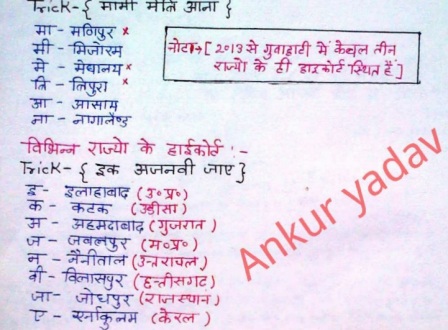 Trick-{ मामी मेति आना }
मा - मणिपुर x
मी - मिजोरम
मे - मेघालय x
ति - त्रिपुरा x
आ - आसाम
ना - नागालैण्ड
नोटः→[2013 से गुवाहाटी में केवल तीन
राज्यो के ही हाईकोर्ट स्थित हैं]
विभिन्न राज्यो के हाईकोर्ट :-
Trick- { इक अजनवी जाए }
इ - इलाहाबाद (उ०प्र०)
क - कटक (उड़ीसा)
अ - अहमदाबाद (गुजरात)
ज - जबलपुर (म०प्र०)
न - नैनीताल (उत्तरांचल)
वी - विलासपुर (छत्तीसगढ)
जा - जोधपुर (राजस्थान)
ए - एर्नाकुलम (केरल)
Ankur yadav